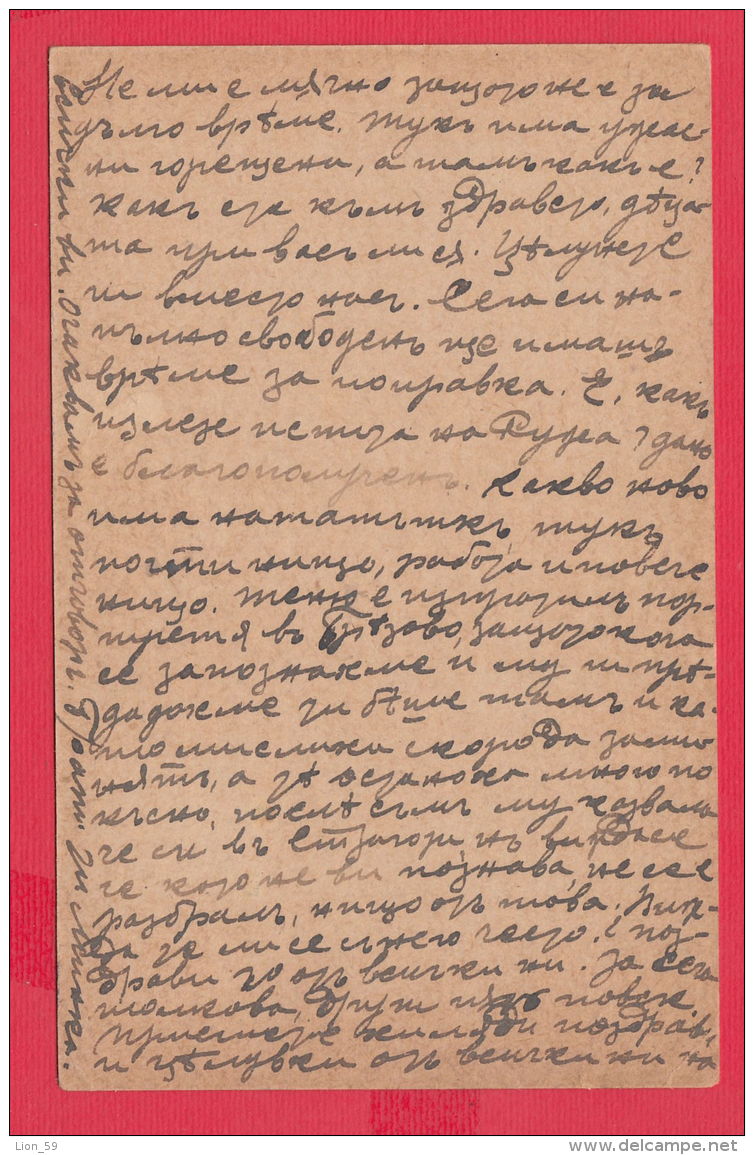 Не ми е мѫчно защото не е за
дълго врѣме. Тукъ има ужас-
ни горещени, а тамъ какъ е?
Какъ сте къмъ здравето, дѣца-
та при васъ ли сѫ. Цѣлунете
ги вместо насъ. Сега си на-
пълно свободенъ ще имашъ
врѣме за поправка. Е, какъ
излезе истията на Ружа? дано
е благополученъ. Какво ново
има нататъткъ, тукъ
почти нищо, работа и повече
нищо. Теню е изпратилъ пор-
третя въ Брѣзово, защото кога
се запознахме и му ги прѣ-
дадохме ти бѣше тамъ и ка-
то мислихи скоро да зами-
нятъ, а тѣ останаха много по
късно, послѣ съмъ му казвала
че си въ Ст. Загора, нъ
че като не ви познава, не се е
разбралъ, нищо отъ това.
да че ми се
драви го отъ всички ни. За сега
толкова, други пѫть повече.
Приемете хиляди поздрави
и цѣлувки отъ всички ни на
всички ви. Очаквамъ за отговоръ. Минка.
Lion_59
www.delcampe.net